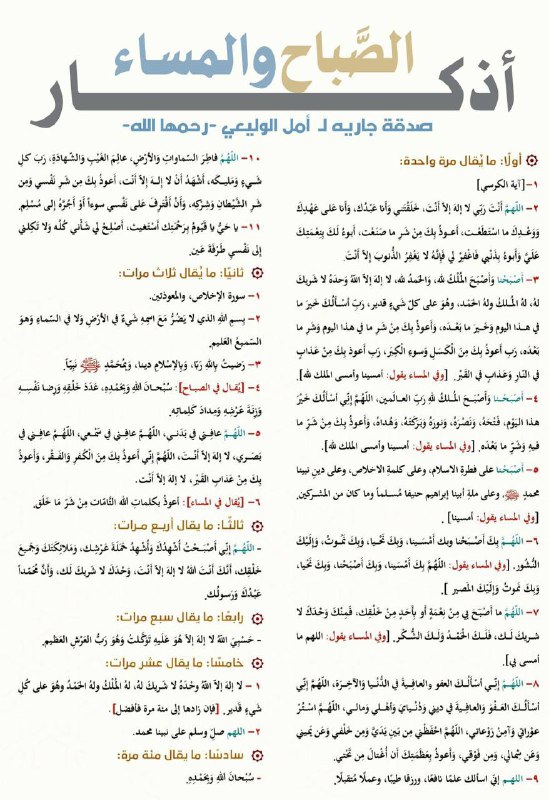 أذكـــــار
الصَّباح والمساء
صدقة جاريه لـ أمل الوليعي -رحمها الله-
أولًا: ما يُقال مرة واحدة:
١- [آية الكرسي]
٢- اللهمَّ أنتَ رَبّي لا إلهَ إلاَّ أنْتَ، خَلَقْتَني وأنا عَبْدُك، وَأنا عَلى عَهْدِكَ
وَوَعْدِكَ ما استَطَعْت، أعـوذُ بِكَ مِنْ شَرِ ما صَنَعْت، أبوءُ لَكَ بِنِعْمَتِكَ
عَلَيَّ وأبوءُ بذَنْبي فَاغفِرْ لي فإنَّهُ لا يَغْفِرُ الذُّنوبَ إلاَّ أنْتَ.
٣- أصْبَحْنا وَأَصْبَحَ المُلْكُ لله، والحَمدُ لله، لا إلهَ إلاَّ اللهُ وَحدَهُ لا شَريكَ
لهُ، لهُ المُـلكُ ولهُ الحَمْد، وهُوَ على كلّ شَيءٍ قدير، رَبِ أسْألُكَ خَيرَ ما
في هـذا اليوم وَخَيرَ ما بَعْـدَه، وَأَعوذُ بِكَ مِنْ شَرِ ما في هـذا اليوم وَشَرِ ما
بَعْدَه، رَبِ أَعوذُ بِكَ مِنَ الْكَسَلِ وَسوءِ الكِبَر، رَبِ أَعوذُ بِكَ مِنْ عَذابٍ
في النّارِ وَعَذابٍ في القَبْر. [وفي المساء يقول: أمسينا وأمسى الملك لله].
٤- أصبَـحْنا وَأَصْبَـحَ المـلكُ للهِ رَبِّ العـالَمين، اللهُمَّ إنّي أسألُكَ خَيْرَ
هذا اليَوْم، فَتْحَهُ، وَنَصْرَهُ، وَنورَهُ وَبَرَكَتَهُ، وَهُداهُ، وَأَعوذُ بِكَ مِنْ شَرِّ ما
فيهِ وَشَرِّ ما بَعْدَه. [وفي المساء يقول: أمسينا وأمسى الملك لله].
٥- أصبَحْنا على فطرة الاسلام، وعلى كلمةِ الاخلاص، وعلى دينِ نبينا
محمدٍ ﷺ، وعلى ملةِ أبينا إبراهيم حنيفا مُسـلما وما كان من المشركين.
[وفي المساء يقول: أمسينا].
٦- اللّهُمَّ بِكَ أَصْبَحْنا وَبِكَ أَمْسَينا، وَبِكَ نَحْيا، وَبِكَ نَمُوتُ، وَإِلَيْكَ
النُّشُور. [وفي المساء يقول: اللّهُمَّ بِكَ أَمْسَيْنا، وَبِكَ أَصْبَحْنا، وَبِكَ نَحْيا،
وَبِكَ نَمُوتُ وَإِلَيْكَ المَصير ].
٧- اللّهُمَّ ما أَصْبَحَ بي مِنْ نِعْمَةٍ أو بِأحَدٍ مِنْ خَلْقِك، فَمِنْكَ وَحْدَكَ لا
شريكَ لَـك، فَلَـكَ الْحَمْـدُ وَلَـكَ الشُّـكْر. [وفي المساء يقول: اللهم ما
أمسى بي].
٨- اللّهُمَّ إنِّـي أسْألُـكَ العفو والعافِـيةَ في الدُّنْـيا وَالآخِـرَة، اللّهُمَّ إنِّـي
أسْألُـكَ العَـفْوَ وَالعافِـيةَ في ديني وَدُنْـيايَ وَأهْـلي وَمالـي، اللّهُمَّ اسْـتُرْ
عوْراتي وَآمِنْ رَوْعاتي، اللّهُمَّ احْفَظْني مِن بَينِ يَدَيَّ وَمِن خَلْفي وَعَن يَميني
وَعَن شِمالي، وَمِن فَوْقي، وَأعوذُ بِعَظَمَتِكَ أن أُغْتالَ مِن تَحْتي.
٩- اللهم إني أسالك علمًا نافعًا، ورزقا طيبًا، وعملًا متقبلًا.
١٠- اللّهُمَّ فاطِرَ السّماواتِ وَالأَرْضِ، عالِمَ الغَيْبِ وَالشّهادَةِ، رَبَ كلِ
شَـيءٍ وَمَليكَه، أَشْهَدُ أَنْ لا إلـهَ إلاّ أَنْت، أَعوذُ بِكَ مِن شَرِ نَفْسي وَمِن
شَرِ الشَّيْطانِ وَشِركِه، وَأَنْ أَقْتَرِفَ عَلى نَفْسي سوءاً أَوْ أَجُرَّهُ إلى مُسْلِم.
١١- يا حَيُّ يا قَيُّومُ بِرَحْمَتِكَ أَسْتَغيث، أَصْلِحْ لي شَأني كُلَّه وَلا تَكِلني
إلى نَفْسي طَرْفَةَ عَين.
ثانيًا: ما يُقال ثلاث مرات:
١- سورة الإخلاص، والمعوذتين.
٢- بِسـمِ اللهِ الذي لا يَضُـرُّ مَعَ اسمِهِ شَيءٌ في الأرْضِ وَلا في السّماءِ وَهـوَ
السّميعُ العَليم.
٣- رَضيتُ بِاللهِ رَبّا، وَبِالإسْلامِ دينا، وَمُحَمَّدٍ ﷺ نَبِيّا.
٤- [يُقال في الصباح]: سُبْحـانَ اللهِ وَبِحَمْدِهِ، عَدَدَ خَلْقِهِ وَرِضا نَفْسِـهِ
وَزِنَةَ عَرْشِهِ وَمِدادَ كَلِماتِه.
٥- اللّهُمَّ عافِني في بَدَني، اللّهُمَّ عافِـني في سَمْعي، اللّهُمَّ عافِني في
بَصَـري، لا إلهَ إلاّ أَنْـتَ، اللّهُمَّ إنّي أَعوذُ بِكَ مِنَ الْكُفرِ وَالفَـقْر، وَأَعوذُ
بِكَ مِنْ عَذابِ القَبْر، لا إلهَ إلاّ أَنْتَ.
٦- [يُقال في المساء]: أعوذُ بكلماتِ الله التَّامَّات مِنْ شَرِّ مَا خَلَق.
ثالثًا: ما يقال أربع مرات:
- اللّهُمَّ إنّي أَصْبَـحْتُ أُشْهِدُكَ وَأُشْهِدُ حَمَلَةَ عَرْشِـك، وَمَلائِكَتَكَ وَجَميعَ
خَلْقِك، أَنَّكَ أَنْتَ اللهُ لا إلهَ إلاّ أَنْتَ، وَحْدَكَ لا شَريكَ لَك، وَأَنَّ مُحَمّداً
عَبْدُكَ وَرَسولُك.
رابعًا: ما يقال سبع مرات:
- حَسْبِيَ اللهُ لا إلهَ إلاّ هُوَ عَلَيهِ تَوَكَّلْتُ وَهُوَ رَبُّ العَرْشِ العَظيم.
خامسًا: ما يقال عشر مرات:
١- لا إلهَ إلاَّ اللَّهُ وَحْدَهُ لا شَريكَ لهُ، لهُ المُلْكُ ولهُ الحَمْدُ وهُوَ على كُلِّ
شَيءٍ قَدير. [فإن زادها إلى مئة مرة فأفضل].
٢- اللهم صلِّ وسلم على نبينا محمد.
سادسًا: ما يقال مئة مرة:
- سُبْحَانَ اللَّهِ وَبِحَمْدِهِ.